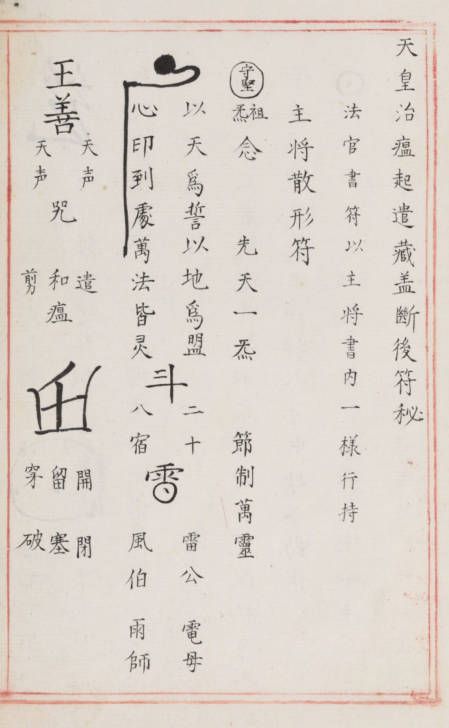 天皇治瘟起遣藏盖斷後符秘
法官書符以主將書內一樣行持
主將散形符
祖炁 念 先天一炁 節制萬靈
以天爲誓以地爲盟
心印到處萬法皆灵
斗
二十
八宿
雷公 電母
風伯 雨師
王善
天声
天声
咒
遣
和瘟
剪
開閉
留塞
穿破